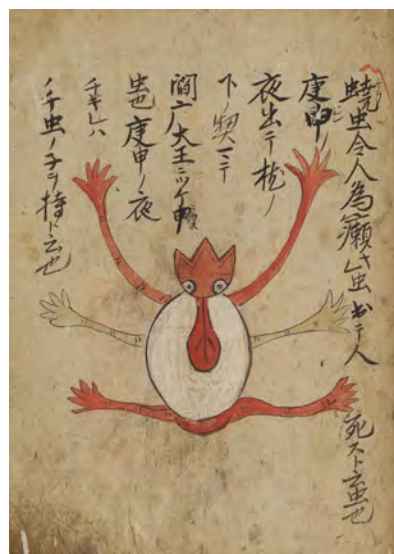 蟯虫令人為癩虫出テ人死スト云虫也
庚申ノ
夜出テ
下ノ契
閻广大王ニツケ申
虫也庚申ノ夜
チギレハ
ノ千虫ノ子ヲ持ト云也